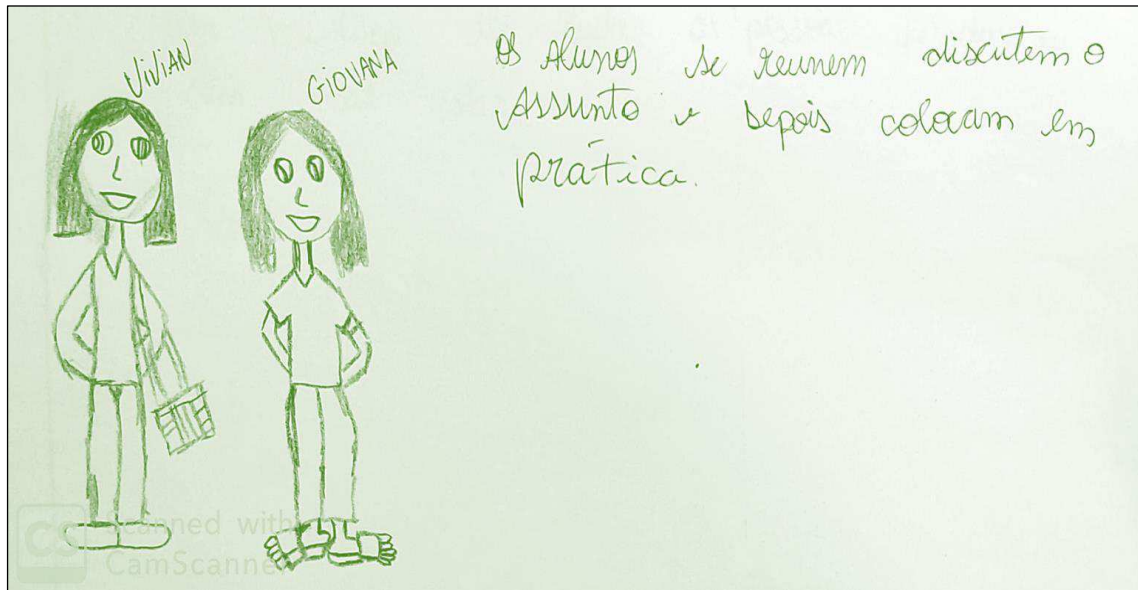 ViViAN
GiOVANA
os Alunos se reunem discutem o
Assunto e depois colocam em
prática.
CS
Scanned with
CamScanner